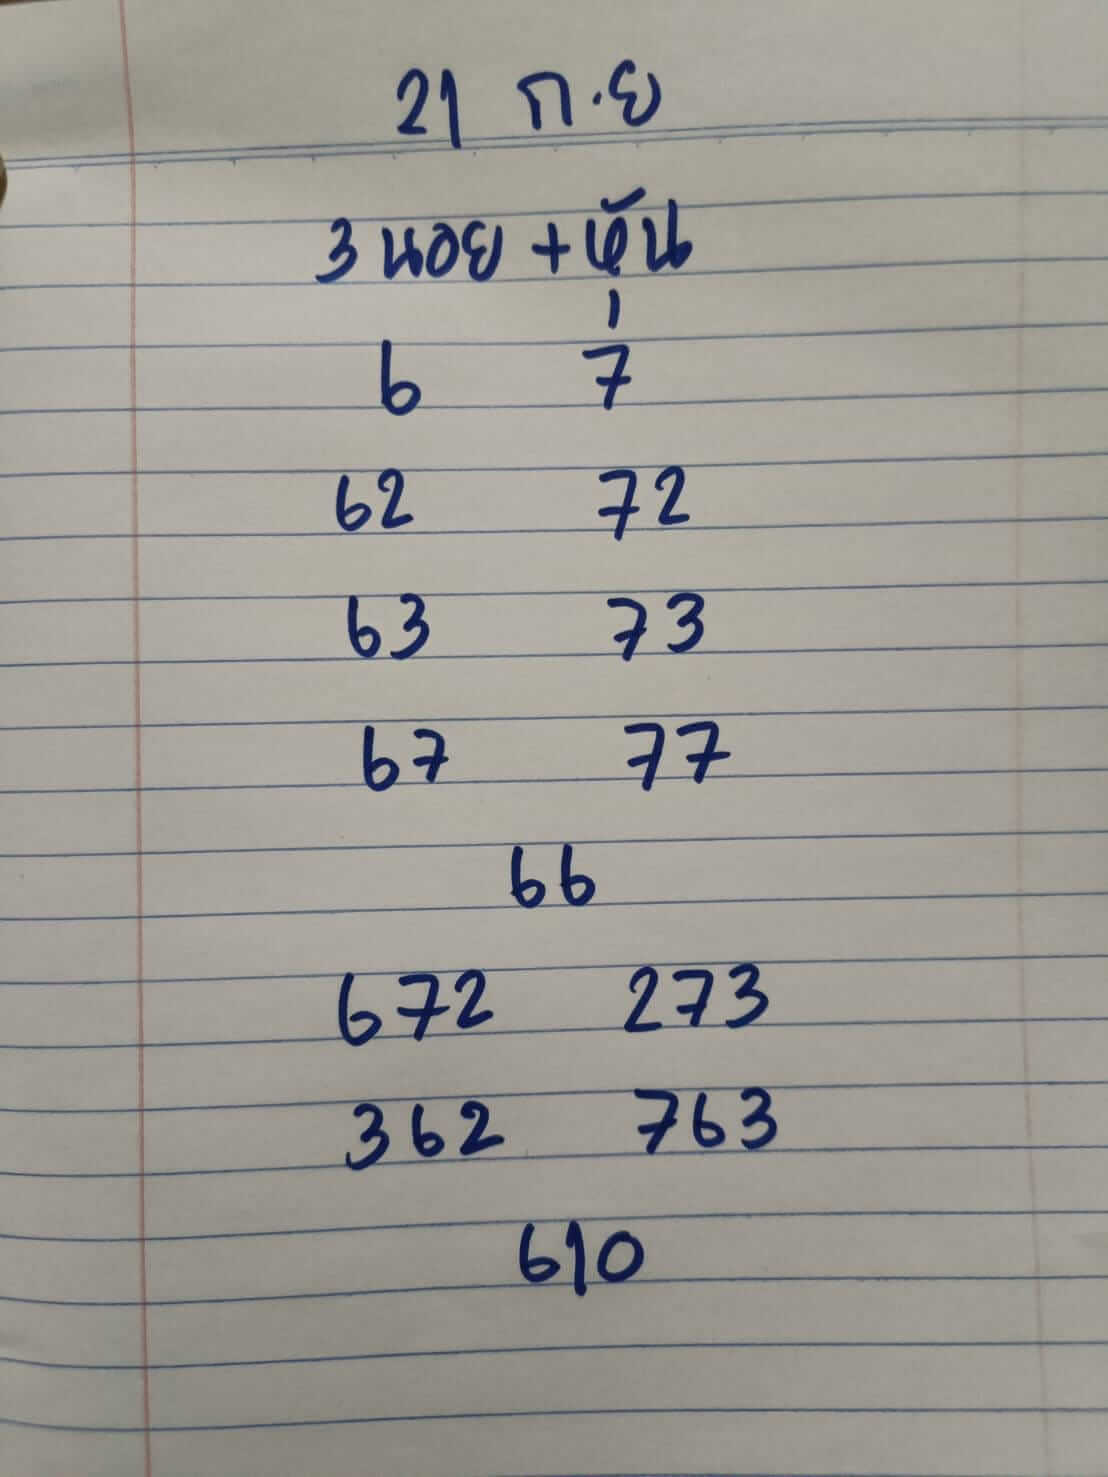 21 ก.ย
3 นอย + หุ้น
6 7
62 72
63 73
67 77
66
672 273
362 763
610